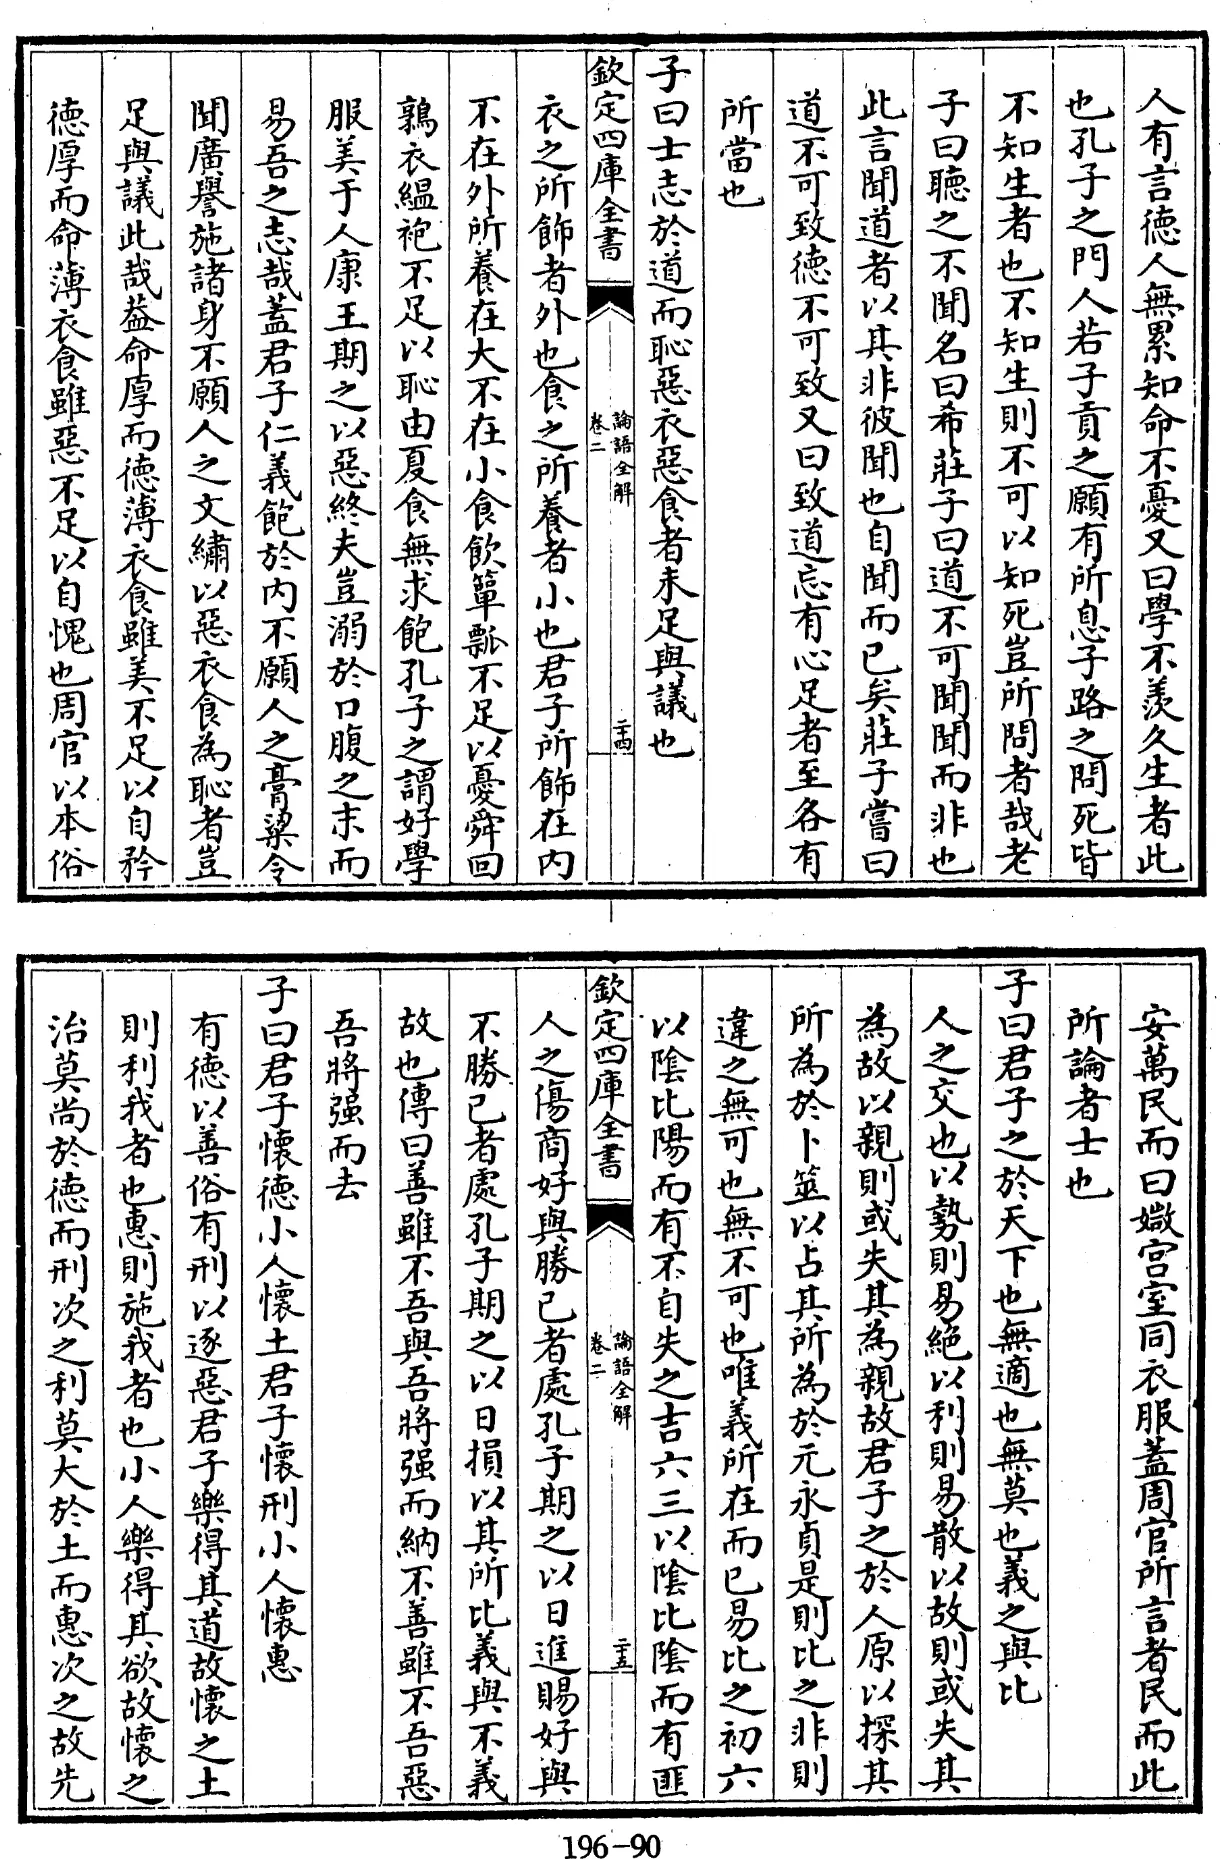 人有言德人無累知命不憂又曰學不羨久生者此
也孔子之門人若子貢之願有所息子路之問死皆
不知生者也不知生則不可以知死豈所問者哉老
子曰聽之不聞名曰希莊子曰道不可聞聞而非也
此言聞道者以其非彼聞也自聞而已矣莊子嘗曰
道不可致德不可致又曰致道忘有心足者至各有
所當也
子曰士志於道而恥惡衣惡食者未足與議也
欽定四庫全書
論語全解
卷二
二十四
衣之所飾者外也食之所養者小也君子所飾在内
不在外所養在大不在小食飲簞瓢不足以憂舜回
鶉衣縕袍不足以恥由夏食無求飽孔子之謂好學
服美于人康王期之以惡終夫豈溺於口腹之末而
易吾之志哉蓋君子仁義飽於内不願人之膏粱令
聞廣譽施諸身不願人之文繡以惡衣食為恥者豈
足與議此哉蓋命厚而德薄衣食雖美不足以自矜
德厚而命薄衣食雖惡不足以自愧也周官以本俗
安萬民而曰媺宫室同衣服蓋周官所言者民而此
所論者士也
子曰君子之於天下也無適也無莫也義之與比
人之交也以勢則易絶以利則易散以故則或失其
為故以親則或失其為親故君子之於人原以探其
所為於卜筮以占其所為於元永貞是則比之非則
違之無可也無不可也唯義所在而已易比之初六
以陰比陽而有不自失之吉六三以陰比陰而有匪
欽定四庫全書
論語全解
卷二
二十五
人之傷商好與勝已者處孔子期之以日進賜好與
不勝已者處孔子期之以日損以其所比義與不義
故也傳曰善雖不吾與吾將强而納不善雖不吾惡
吾將强而去
子曰君子懷德小人懷土君子懷刑小人懷惠
有德以善俗有刑以逐惡君子樂得其道故懷之土
則利我者也惠則施我者也小人樂得其欲故懷之
治莫尚於德而刑次之利莫大於土而惠次之故先
196-90